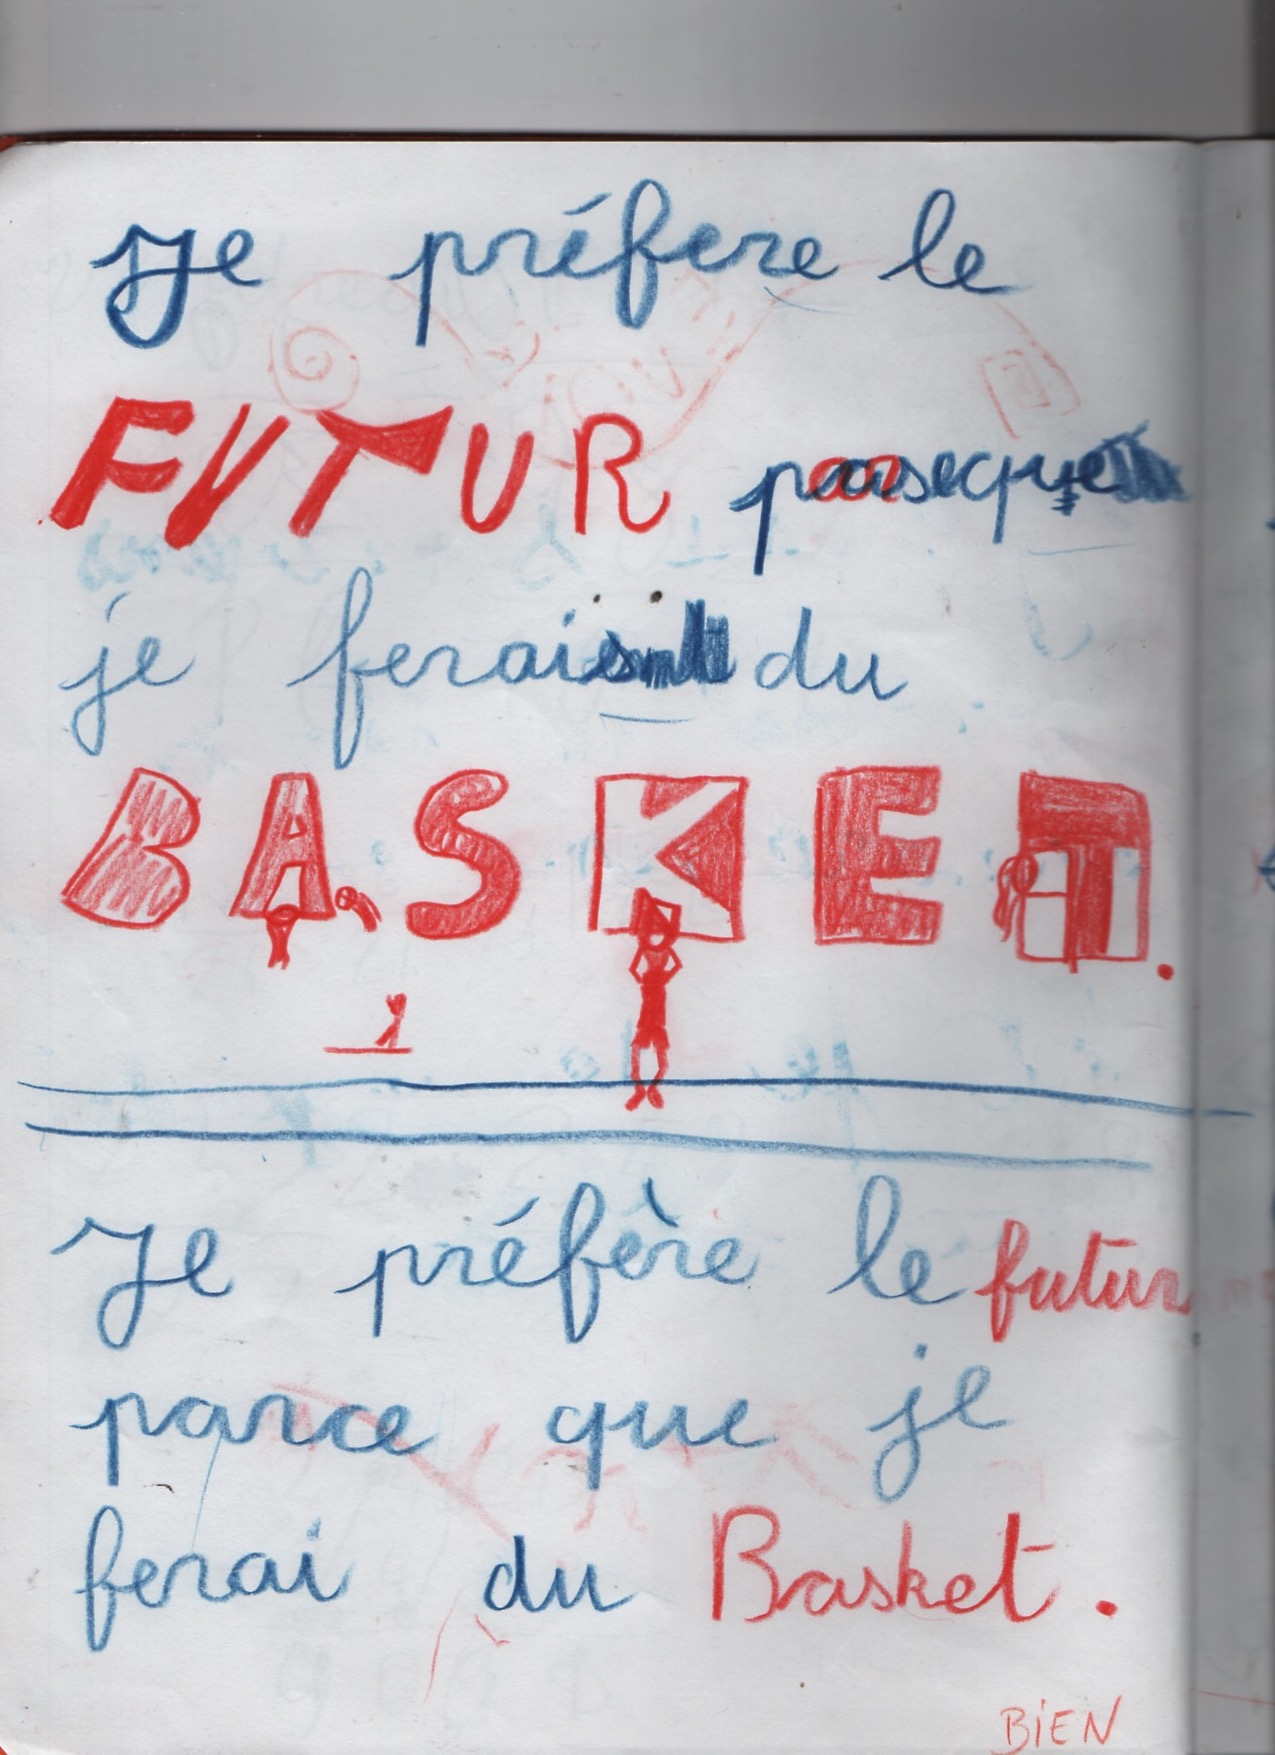 Je préfere le
FUTUR paseque
je ferais du
BASKET.
Je préfère le futur
parce que je
ferai du Basket.
BiEN